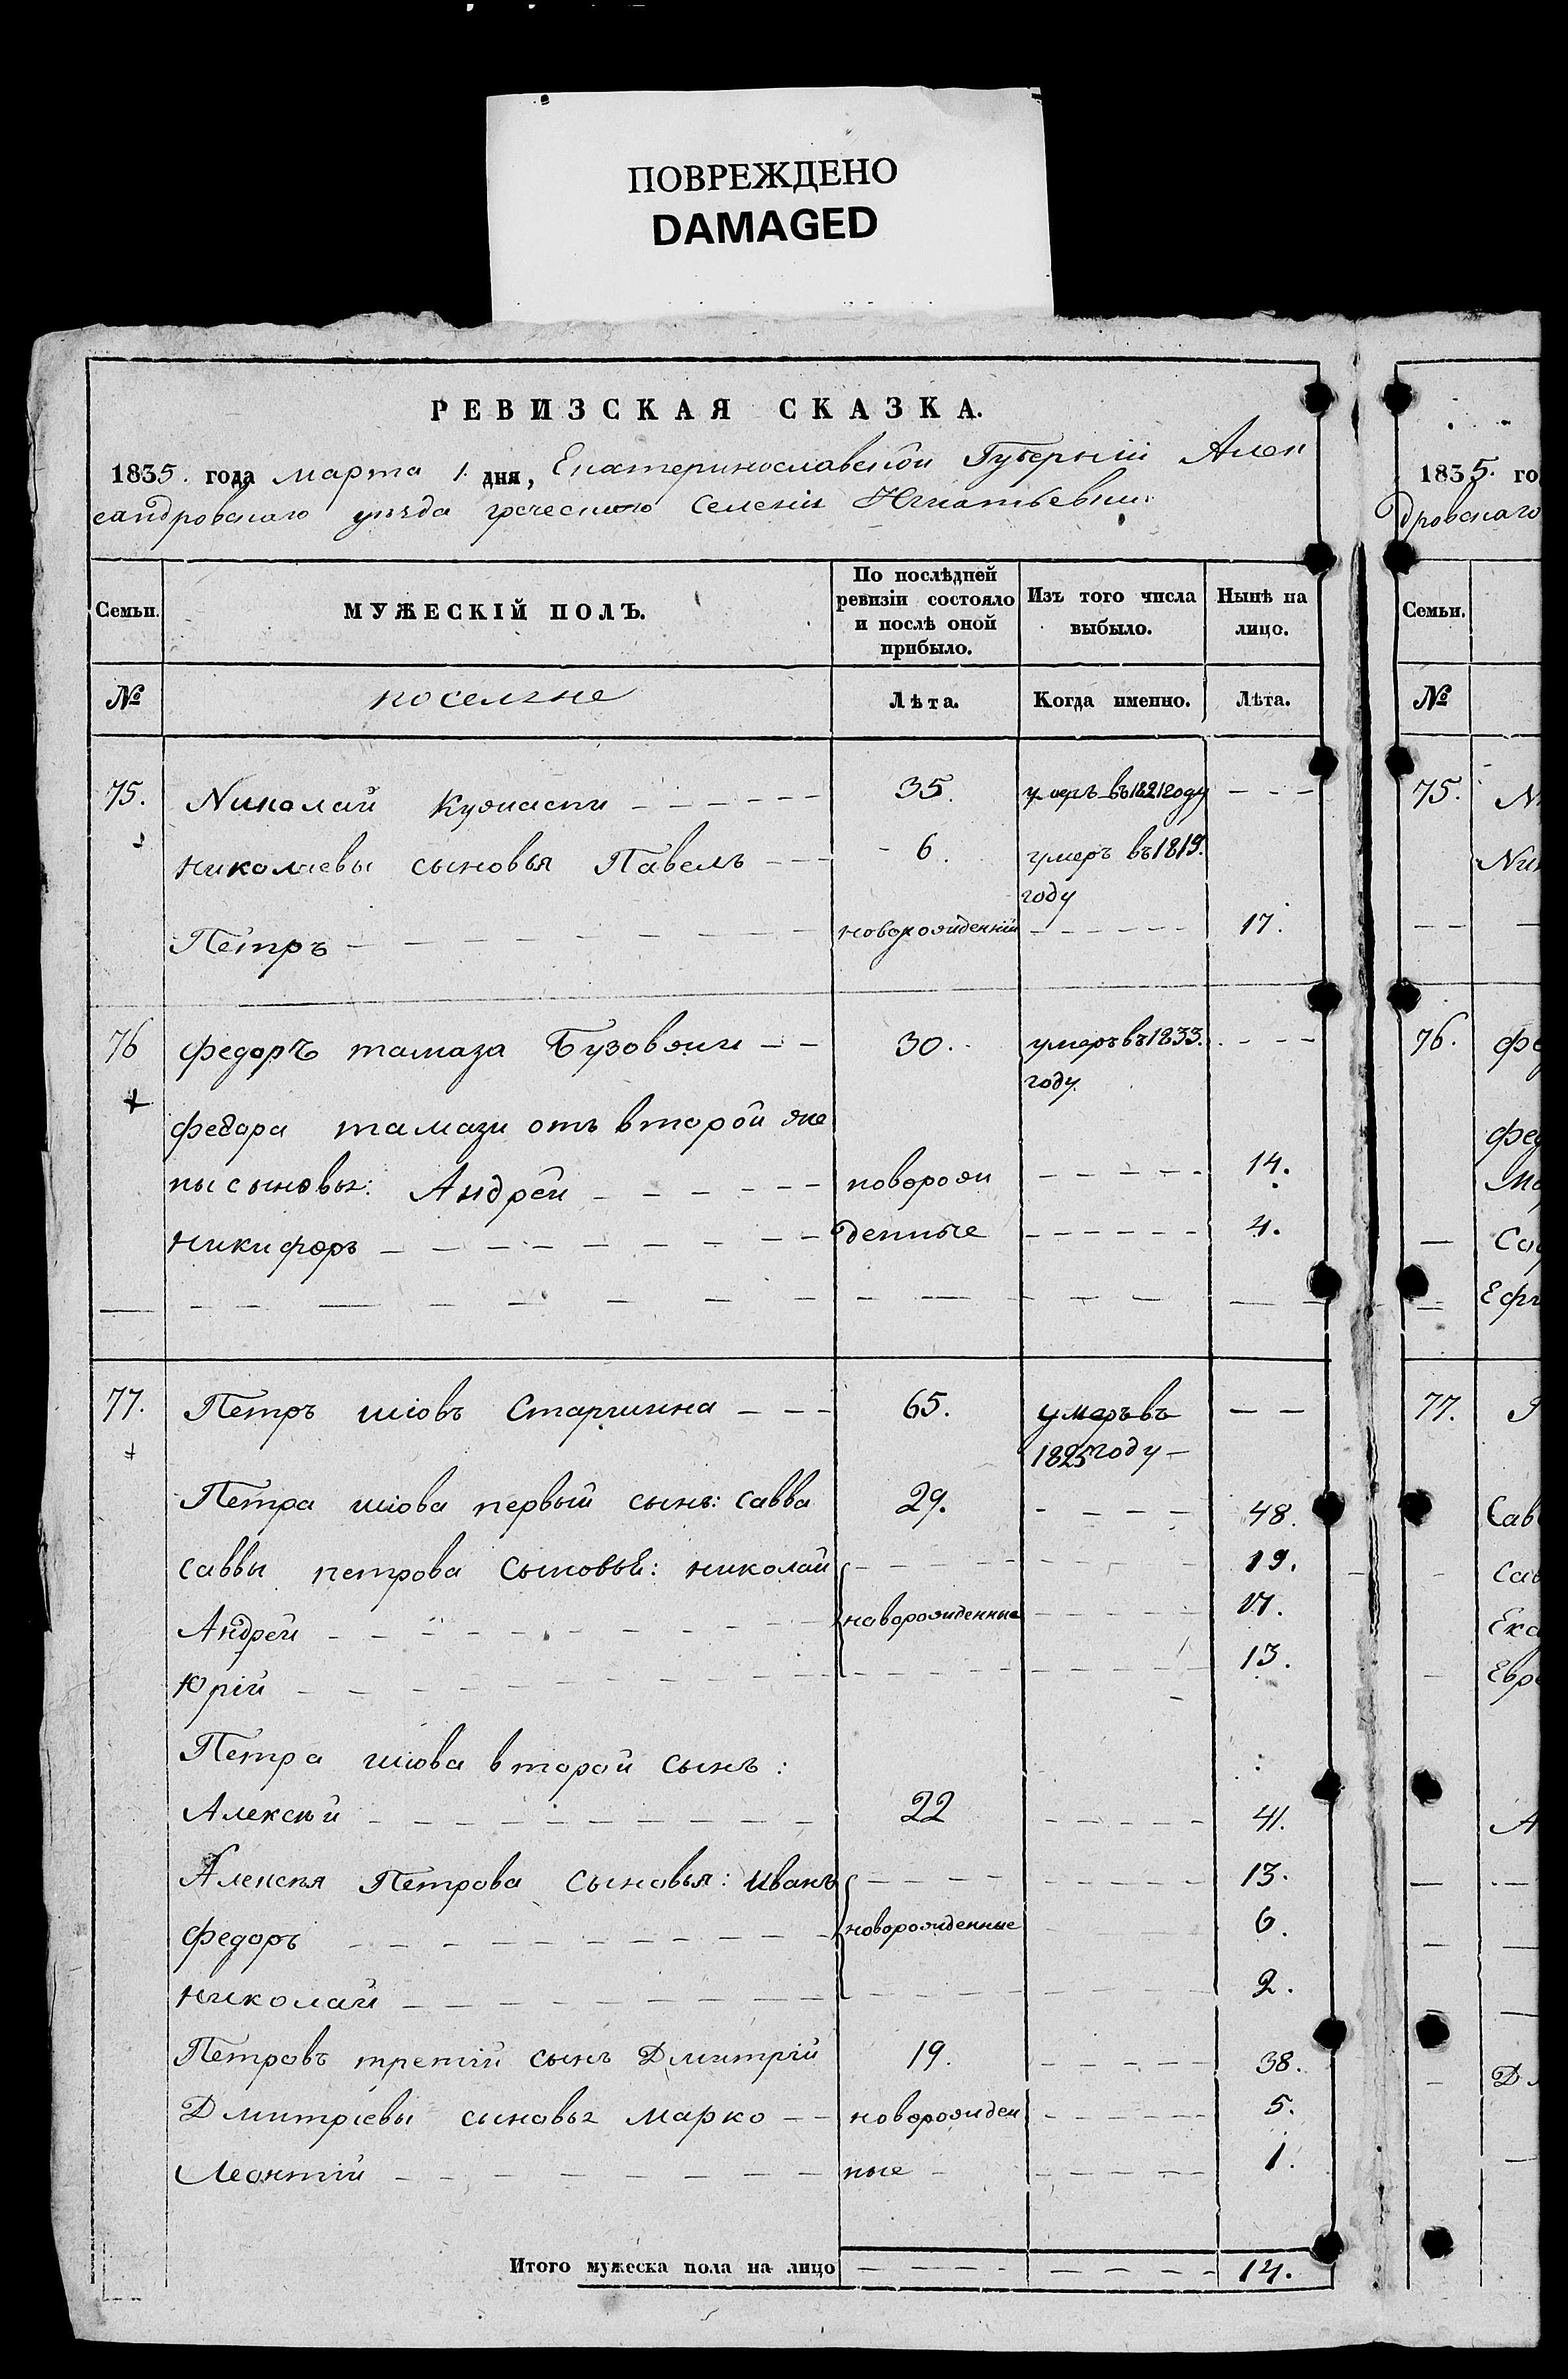 ПОВРЕЖДЕНО
DAMAGED
РЕВИЗСКАЯ СКАЗКА.
1835. года марта 1. дня, Екатеринославской Губерніи Алек
сандровскаго уѣзда греческаго селенія Игнатьевки
Семьи. МУЖЕСКІЙ ПОЛЪ. По послѣдней ревизіи состояло и послѣ оной прибыло. Изъ того числа выбыло. Нынѣ на лицо.
№ поселяне Лѣта. Когда именно. Лѣта.
75. Николай 35. умеръ въ 1821 году
николаевы сыновья Павелъ 6. умеръ въ 1819.
году
Петръ новорожденній 17.
76 федоръ тамаза 30. умеръ въ 1833.
году.
федора тамази отъ второй же
ны сыновья: Андрей новорож 14.
никифоръ денные 4.
77. Петръ шіовъ Старшина 65. умеръ въ
1825 году
Петра шіова первый сынъ: савва 29. 48.
саввы петрова сыновья: николай 19.
Андрей новорожденные
Юрій 13.
Петра шіова второй сынъ:
Алексѣй 22 41.
Алексѣя Петрова сыновья: иванъ 13.
федоръ новорожденные 6.
николай 2.
Петровъ третій сынъ Дмитрій 19. 38.
Дмитріевы сыновья марко новорожден 5.
Леонтій ные 1.
Итого мужеска пола на лицо 14.
1835. го
дровскаго
Семьи.
№
75. Ни
Ник
76. фе
фед
Со
77.
Сав
сав
Ека
Евр
А